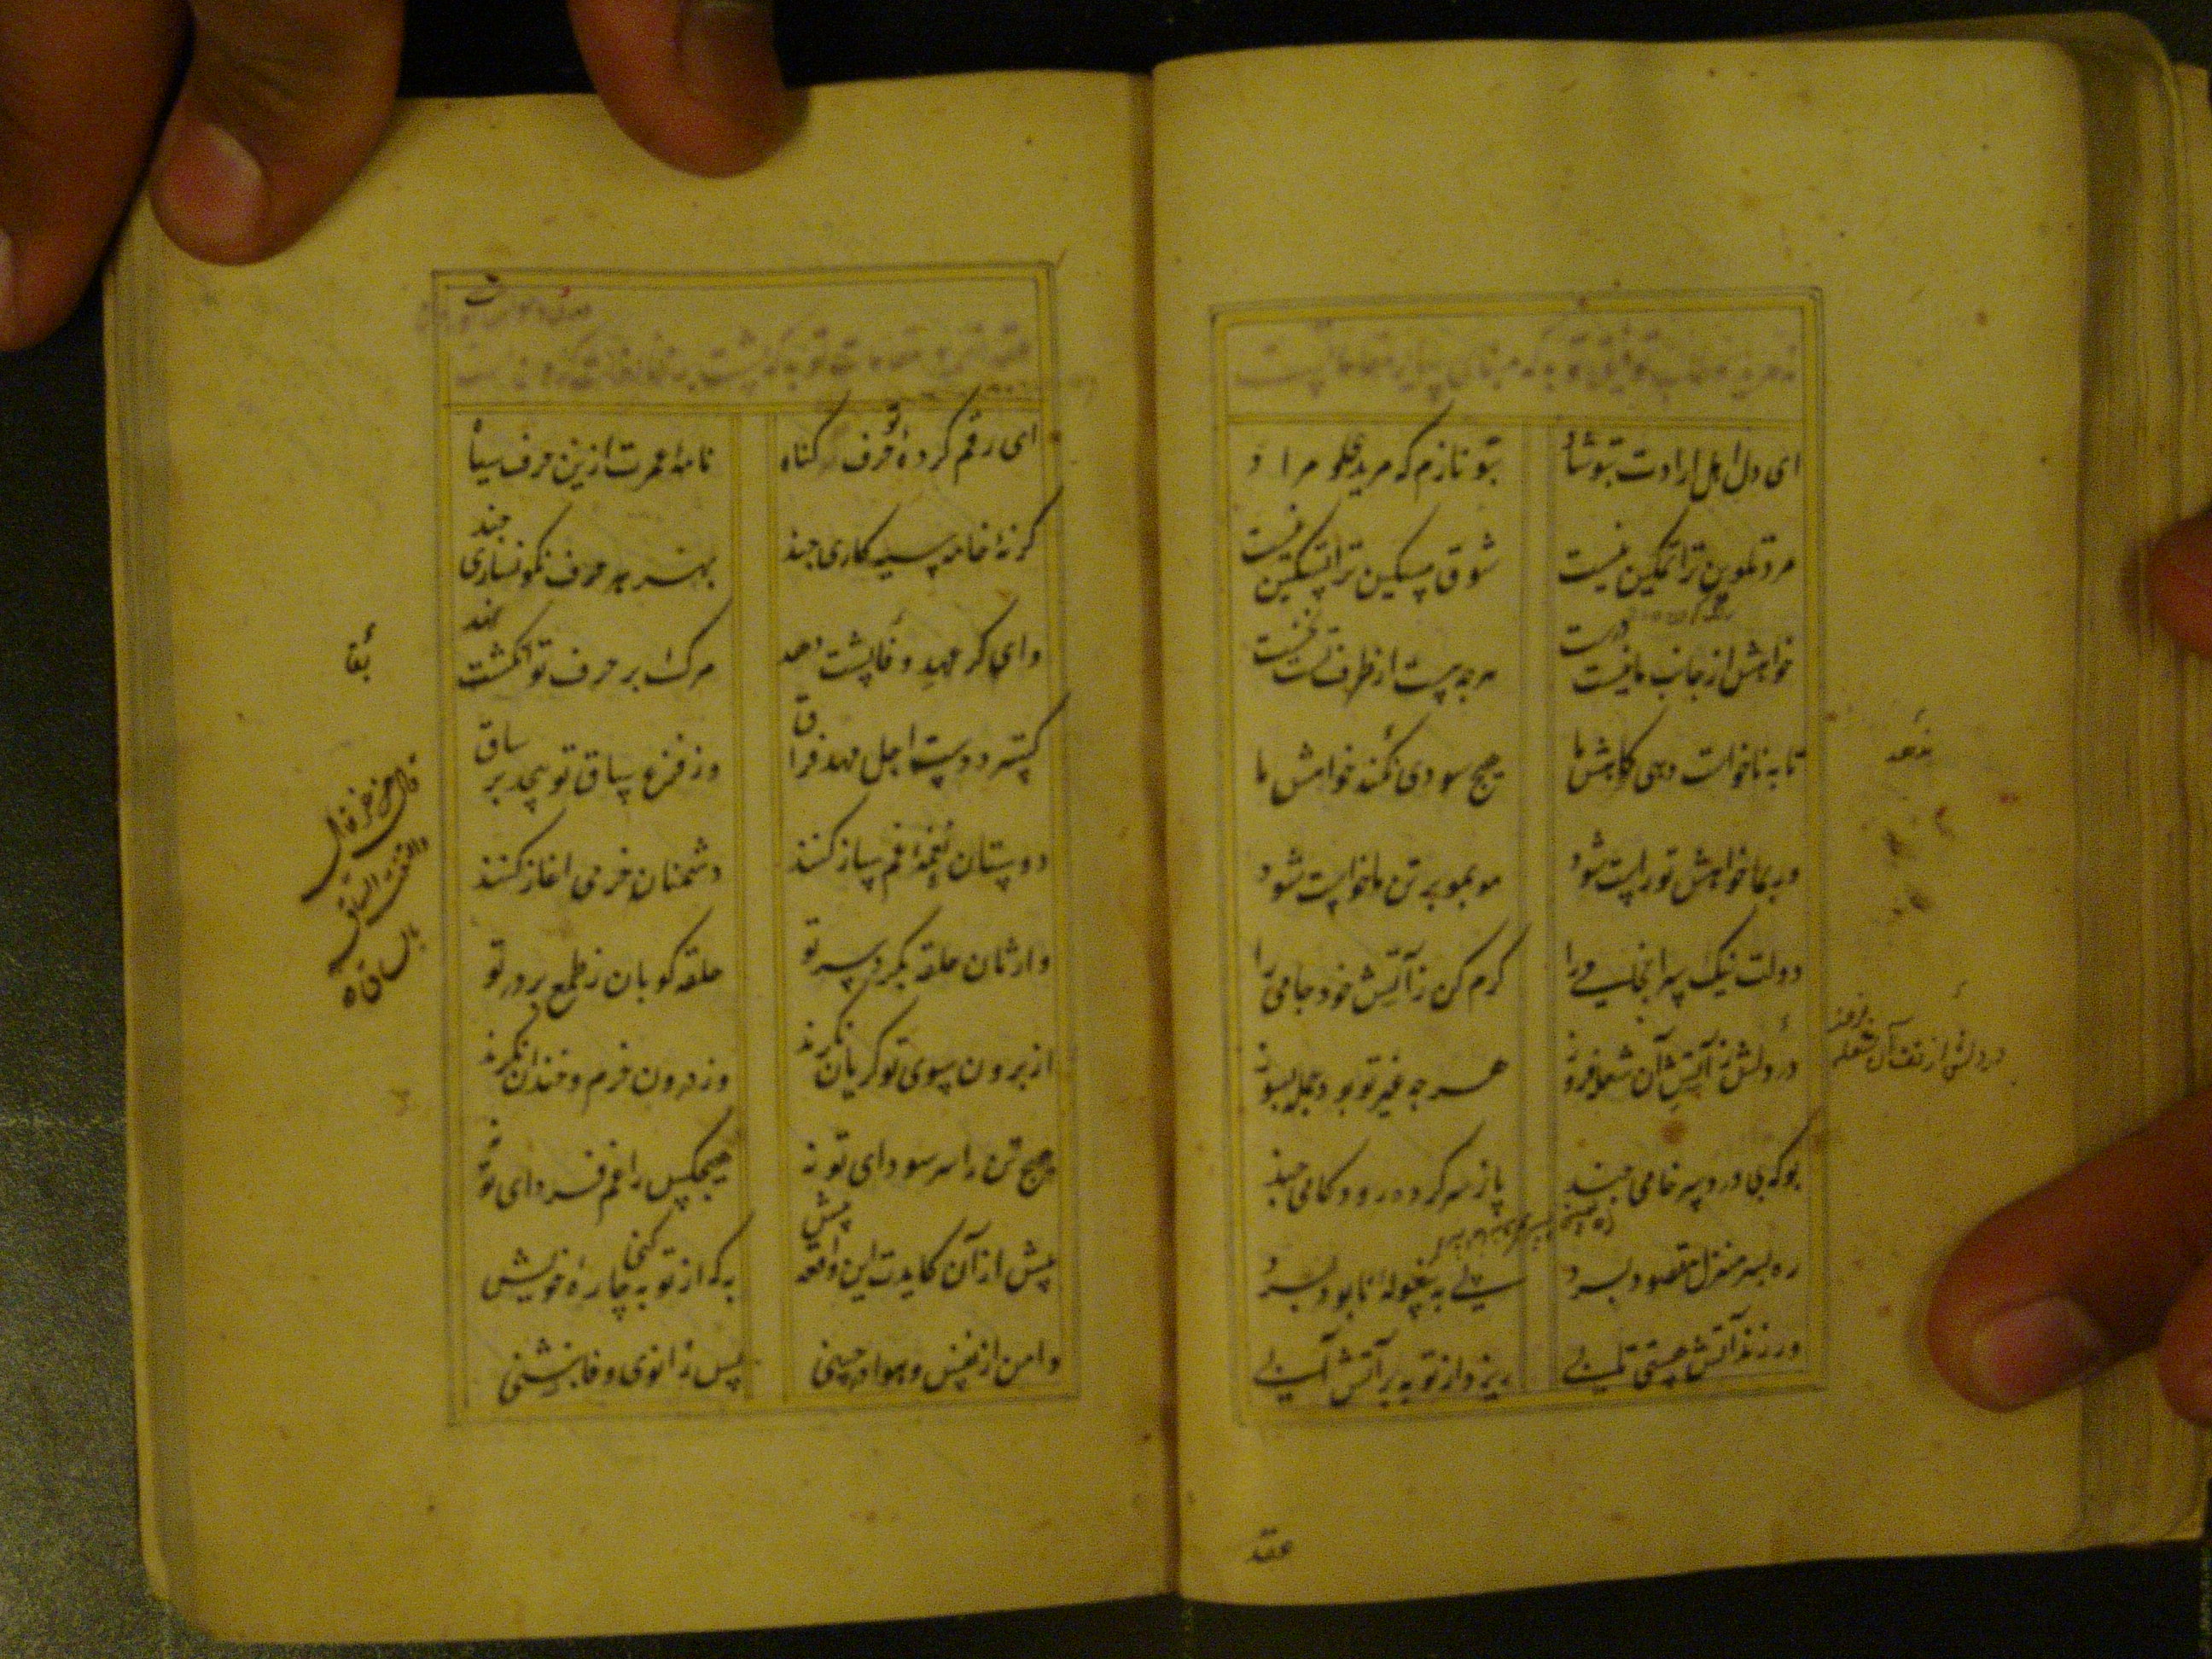 ای دل اهل ارادت بتو شاد بتو نازم که مریدی و مراد
مرد تلوین ترا تمکین نیست شوق مسکین ترا تسکین نیست
خواهش از جانب ما نیست درست هر چه هست از طرف تست نخست
تا به ناخواست دهی کاهش ما هیچ سودی نکند خواهش ما
ور بما خواهش تو راست شود مو بمو بر تن ما خواست شود
دولت نیک سرانجامی را گرم کن ز آتش خود جامی را
در دلش ز آتش آن شعله فروز هر چه غیر تو بود جمله بسوز
بو که بی درد سر خامی چند پا ز سر کرده رود گامی چند
ره بسر منزل مقصود برد پی به بیغوله نابود برد
ور زند آتش هستی تابی ریزد از توبه بر آتش آبی
در دلش از تف آن شعله فروز
عقد
ای رقم کرده تو حرف گناه نامه عمرت ازین حرف سیاه
کرنه خامه سیه کاری چند بهر هر حرف نگونساری چند
وای گر عهد وفا پشت دهد مرگ بر حرف تو انگشت نهد
گسترد دست اجل مهد فراق وز فزع ساق تو پیچد بر ساق
دوستان نغمه غم ساز کنند دشمنان خرمی آغاز کنند
وارثان حلقه بگرد سر تو حلقه کوبان ز طمع بر در تو
از برون سوی تو گریان نگرند وز درون خرم و خندان نگرند
هیچ تن را سر سودای تو نه هیچکس را غم فردای تو نه
پیش از آن کایدت این واقعه پیش به که از توبه کنی چاره خویش
دامن از نفس و هوا در چینی پس زانوی وفا بنشینی
بقا